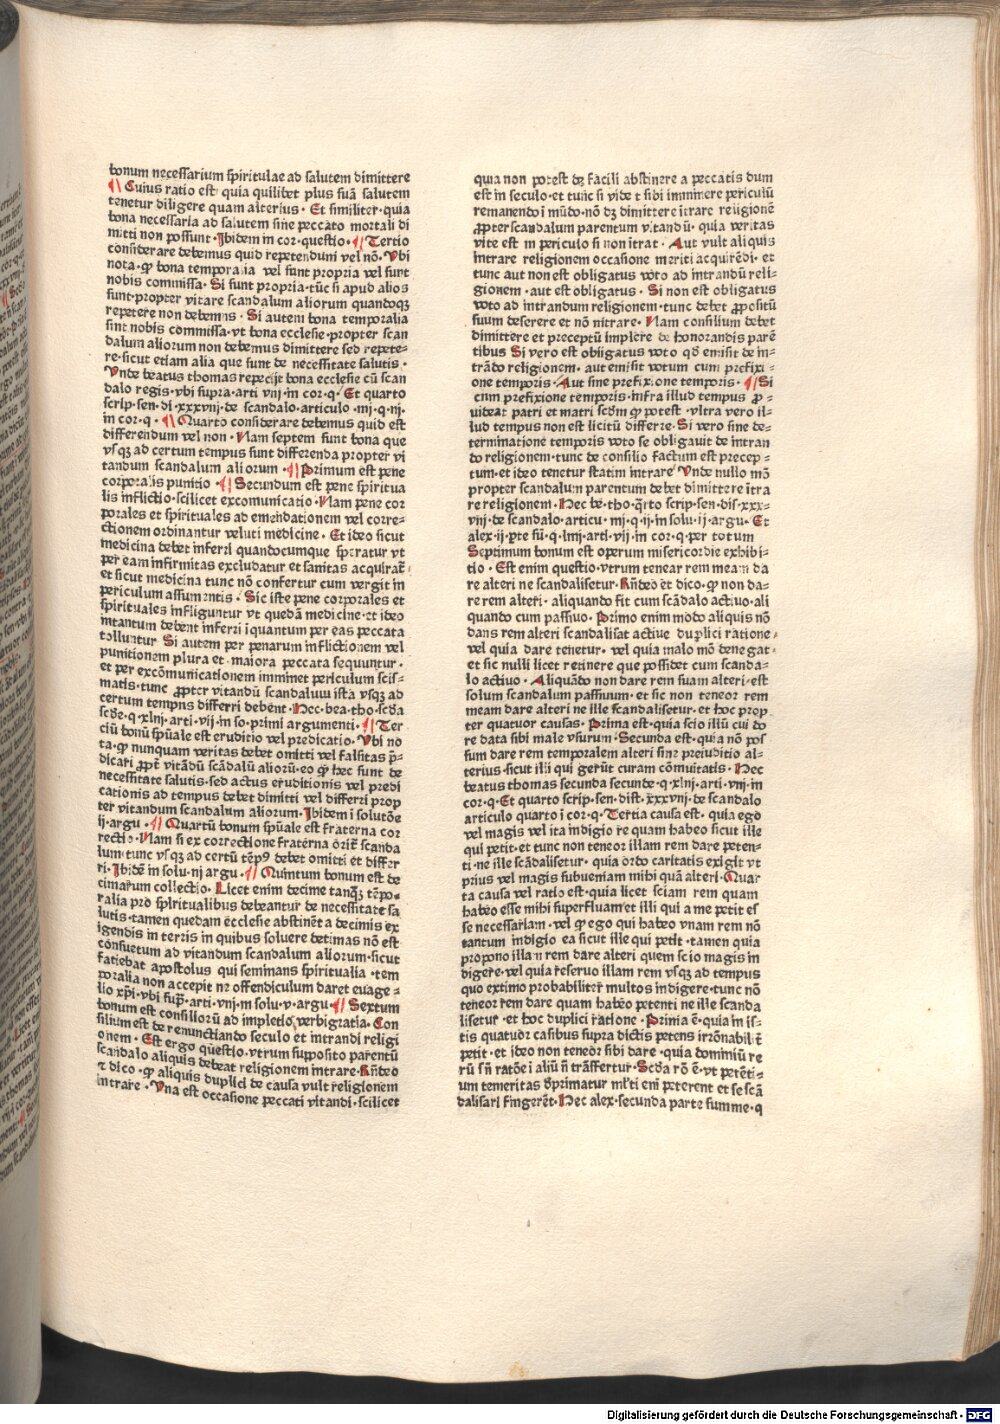 bonum necessarium spiritulae ad salutem dimittere
¶ Cuius ratio est quia quilibet plus suā salutem
tenetur diligere quam alterius · Et similiter · quia
bona necessaria ad salutem sine peccato mortali di
mitti non possunt · Ibidem in cor · questio · ¶ Tertio
considerare debemus quid repetenduni vel nō · Vbi
nota · ꝙ bona temporalia vel sunt propria vel sunt
nobis commissa · Si sunt propria · tūc si apud alios
sunt · propter vitare scandalum aliorum quandoqꝫ
repetere non debemus · Si autem bona temporalia
sint nobis commissa · vt bona ecclesie · propter scan
dalum aliorum non debemus dimittere sed repete⸗
re · sicut etiam alia que sunt de necessitate salutis ·
Vnde beatus thomas repecijt bona ecclesie cū scan
dalo regis · vbi supra · arti viij in cor · q · Et quarto
scrip · sen · di · xxxvnj · de scandalo · articulo · mj · q · nj ·
in cor · q · ¶ Quarto considerare debemus quid est
differendum vel non · Nam septem sunt bona que
vsqꝫ ad certum tempus sunt differenda propter vi
tandum scandalum aliorum · ¶ Primum est pene
corporalis punitio · ¶ Secundum est pene spiritua
lis inflictio · scilicet excomunicatio · Nam pene cor
porales et spirituales ad emendationem vel corre⸗
ctionem ordinantur veluti medicine · Et ideo sicut
medicina debet inferri quandocumque speratur vt
per eam infirmitas excludatur et sanitas acquirat̄ ·
et sicut medicina tunc nō confertur cum vergit in
periculum assumentis · Sic iste pene corporales et
spirituales infliguntur vt quedā medicine · et ideo
intantum debent inferri īquantum per eas peccata
tolluntur Si autem per penarum inflictionem vel
punitionem plura et maiora peccata sequuntur ·
et per excōmunicationem imminet periculum scis⸗
matis · tunc ꝓpter vitandū scandaluɯ ista vsqꝫ ad
certum tempns differri debent · Hec · bea · tho · scd̄a
scd̄e · q · xlnj · arti · vij · in so · primi argumenti · ¶ Ter
ciū bonū sp̄uale est eruditio vel predicatio · Vbi no
ta · ꝙ nunquam veritas debet omitti vel falsitas p̄⸗
dicari ꝓpt̄ vitādū scādalū aliorū · eo ꝙ hec sunt de
necessitate salutis · sed actus eruditionis vel predi
cationis ad tempus debet dimitti vel differri prop
ter vitandum scandalum aliorum · Ibidem ī solutōe
ij · argu · ¶ Quartū bonum sp̄uale est fraterna cor
rectio · Nam si ex correctione fraterna ōrit̄ scanda
lum tunc vsqꝫ ad certū tēpꝰ debet omitti et differ
ri · Ibidē in solu · nj argu · ¶ Quintum bonum est de
cimarum collectio · Licet enim decime tanqꝫ tēpo⸗
ralia pro spiritualibus debeantur de necessitate sa
lutis · tamen quedam ecclesie abstinēt a decimis ex
igendis in terris in quibus soluere decimas nō est
consuetum ad vitandum scandalum aliorum · sicut
faciebat apostolus qui seminans spiritualia · tem
poralia non accepit ne offendiculum daret euāge⸗
lio xp̄i · vbi sup̄ · arti · vnj · in solu · v · argu · ¶ Sextum
bonum est consiliorū ad impletio verbigratia · Con
silium est de renunctiando seculo et intrandi religi
onem · Est ergo questio · vtrum supposito parentū
scandalo aliquis debeat religionem intrare · Rn̄deo
⁊ dico · ꝙ aliquis duplici de causa vult religionem
intrare · Vna est occasione peccati vitandi · scilicet
quia non potest dꝫ facili abstinere a peccatis dum
est in seculo · et tunc si videt sibi imminere periculū
remanendo ī mūdo · nō dꝫ dimittere ītrare religionē
ꝓpter scandalum parentum vitandū · quia veritas
vite est in periculo si non ītrat · Aut vult aliquis
intrare religionem occasione meriti acquirēdi · et
tunc aut non est obligatus voto ad intrandū reli⸗
gionem · aut est obligatus · Si non est obligatus
voto ad intrandum religionem · tunc debet ꝓpositū
suum deserere et nō nitrare · Nam consilium debet
dimittere et preceptū implere de honorandis parē
tibus Si vero est obligatus voto qd̄ emisit de in⸗
trādo religionem · aut emisit votum cum prefixi⸗
one temporis · Aut sine prefixione temporis · ¶ Si
cum prefixione temporis · infra illud tempus ꝓ⸗
uideat patri et matri scd̄m ꝙ potest · vltra vero il⸗
lud tempus non est licitū differre · Si vero sine de⸗
terminatione temporis voto se obligauit de intran
do religionem · tunc de consilio factum est precep⸗
tum · et ideo tenetur statim intrare Vnde nullo mō
propter scandalum parentum debet dimittere ītra
re religionem · Hec be · tho · q̄rto scrip · sen · dis · xxx⸗
vnj · de scandalo · articu · mj · q · ij · in solu · ij · argu · Et
alex · ij · pte sū · q · lmj · arti · vij · in cor · q · per totum
Septimum bonum est operum misericordie exhibi⸗
tio · Est enim questio · vtrum tenear rem meam da
re alteri ne scandalisetur · Rn̄deo et dico · ꝙ non da⸗
re rem alteri · aliquando fit cum scādalo actiuo · ali
quando cum passiuo · Primo enim modo aliquis nō
dans rem alteri scandalisat actiue duplici ratione ·
vel quia dare tenetur · vel quia malo mō denegat⸗
et sic nulli licet retinere que possidet cum scanda⸗
lo actiuo · Aliquādo non dare rem suam alteri · est
solum scandalum passiuum · et sic non teneor rem
meam dare alteri ne ille scandalisetur · et hoc prop
ter quatuor causas · Prima est · quia scio illū cui do
re data sibi male vsurum · Secunda est · quia nō pos
sum dare rem temporalem alteri sine preiuditio al⸗
terius · sicut illi qui gerūt curam cōmunitatis · Hec
beatus thomas secunda secunde · q · xlnj · arti · vnj · in
cor · q · Et quarto scrip · sen · dist · xxxvnj · de scandalo
articulo quarto ī cor · q · Tertia causa est · quia ego
vel magis vel ita indigio re quam habeo sicut ille
qui petit · et tunc non teneor illam rem dare peten⸗
ti · ne ille scādalisetur · quia ordo caritatis exigit vt
prius vel magis subueniam mihi quā alteri · Quar
ta causa vel ratio est · quia licet sciam rem quam
habeo esse mihi superfluam et illi qui a me petit es
se necessariam · vel ꝙ ego qui habeo vnam rem nō
tantum indigio ea sicut ille qui petit · tamen quia
propono illam rem dare alteri quem scio magis in
digere · vel quia reseruo illam rem vsqꝫ ad tempus
quo extimo probabiliter multos indigere · tunc nō
teneor rem dare quam habeo petenti ne ille scanda
lisetur · et hoc duplici ratione · Prinia ē · quia in is⸗
tis quatuor casibus supra dictis petens irrōnabilit̄
petit · et ideo non teneor sibi dare · quia dominiū re
rū sn̄ ratōe ī aliū n̄ trāffertur · Scd̄a rō ē · vt petēti⸗
um temeritas d̄primatur ml̄ti eni peterent et se scā
dalisari fingerēt · Hec alex · secunda parte summe · q
Digitalisierung gefördert durch die Deutsche Forschungsgemeinschaft - DFG